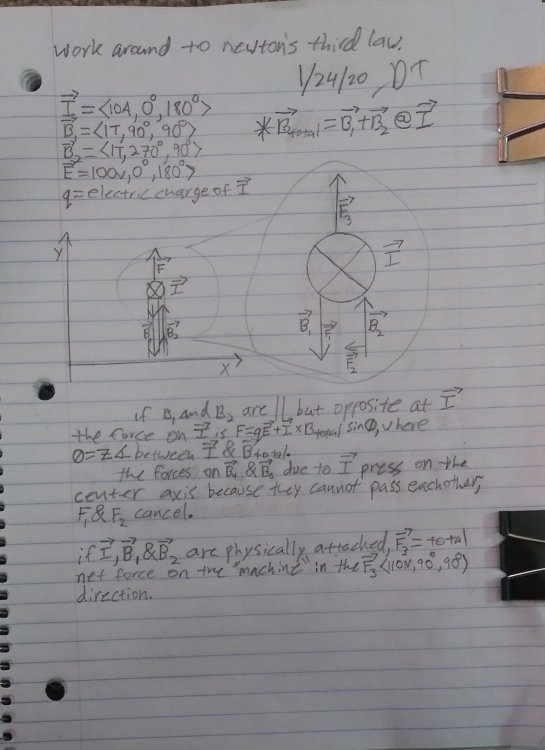 work around to newton's third law.
1/24/20, DT
I⃗ = <10A, 0°, 180°>
B⃗₁ = <1T, 90°, 90°>
B⃗₂ = <1T, 270°, 90°>
E⃗ = 100v, 0°, 180°>
q = electric charge of I⃗
*B⃗total = B⃗₁ + B⃗₂ @ I⃗
Y
F
I⃗
B⃗₁
B⃗₂
X
F⃗₃
I⃗
B⃗₁
F⃗₁
B⃗₂
F⃗₂
if B₁ and B₂ are ||, but opposite at I⃗
the force on I⃗ is F=qE⃗+I⃗×Btotal sinθ, where
θ=7∡ between I⃗ & B⃗total.
the forces on B⃗₁ & B⃗₂ due to I⃗ press on the
center axis because they cannot pass eachother,
F₁ & F₂ cancel.
if I⃗, B⃗₁, & B⃗₂ are physically attached, F⃗₃ = total
net force on the "machine" in the F⃗₃ <110N, 90°, 90°>
direction.